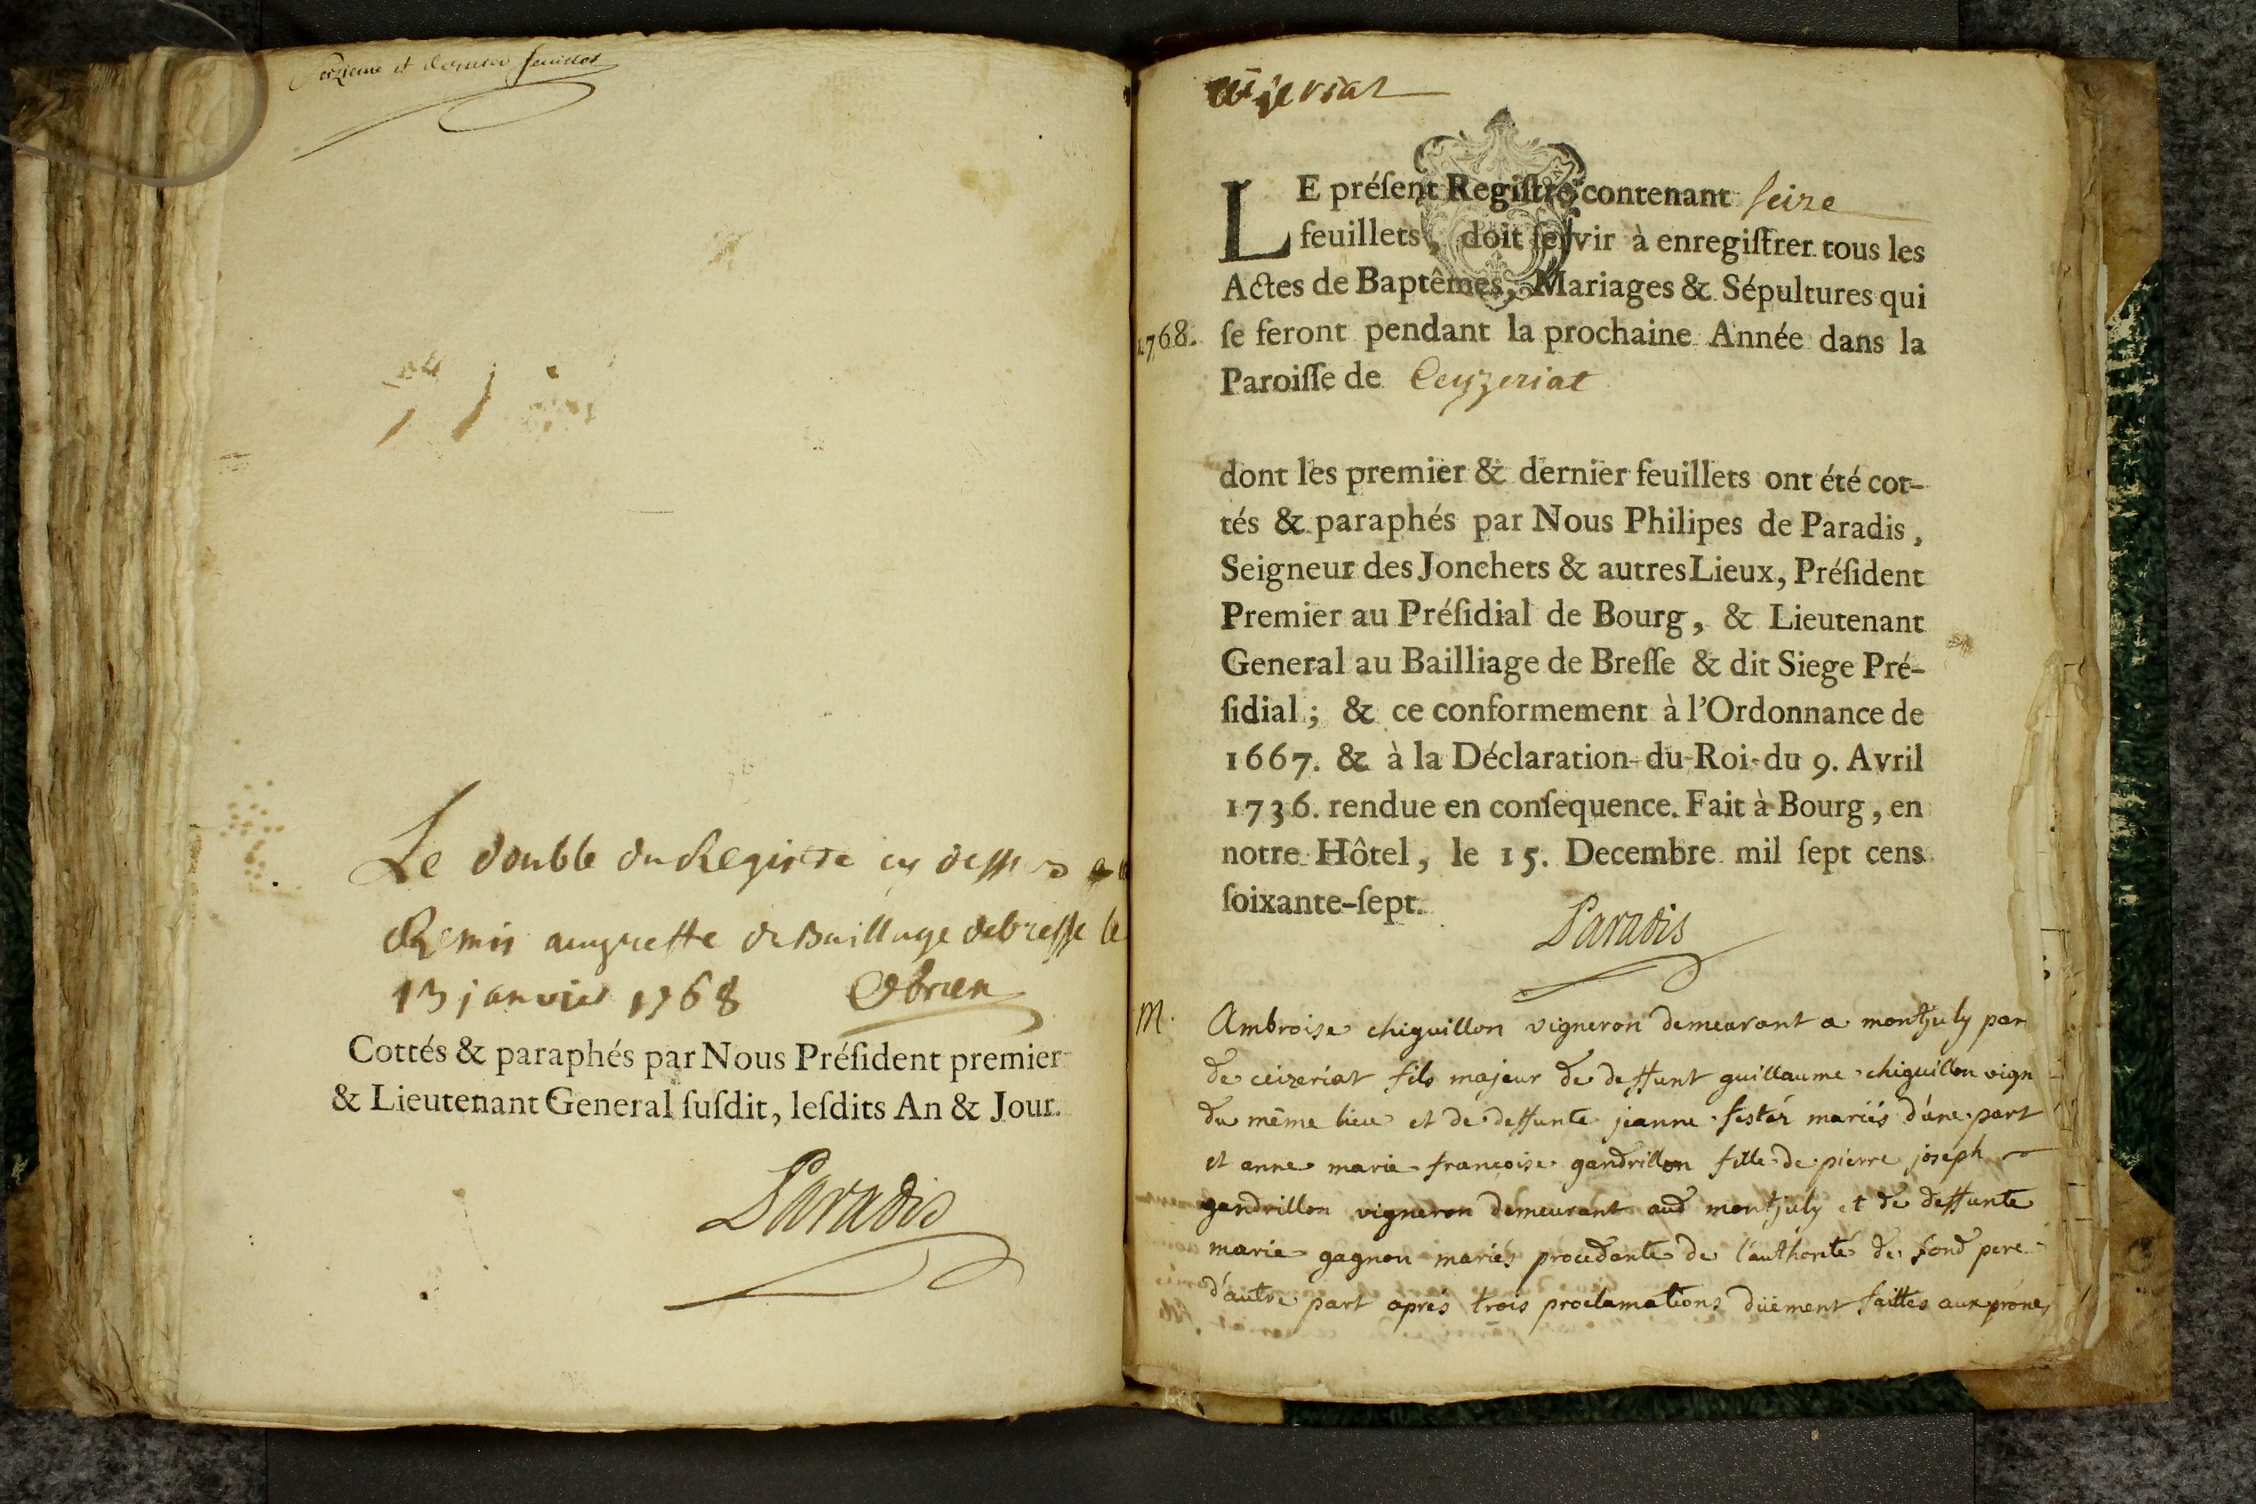 et dernier feuillet
Le double du Registre cy dessus
Remis au greffe du Bailliage de bresse le
13 janvier 1768 Obrien
Cottés & paraphés par Nous Préſident premier
& Lieutenant General ſuſdit, leſdits An & Jour.
Paradis
LE préſent Regiſtre contenant seize
feuillets, doit ſervir à enregiſtrer tous les
Actes de Baptêmes, Mariages & Sépultures qui
1768. ſe feront pendant la prochaine Année dans la
Paroiſſe de Ceyzeriat
dont les premier & dernier feuillets ont été cot-
tés & paraphés par Nous Philipes de Paradis,
Seigneur des Jonchets & autres Lieux, Préſident
Premier au Préſidial de Bourg, & Lieutenant
General au Bailliage de Breſſe & dit Siege Pré-
ſidial; & ce conformement à l'Ordonnance de
1667. & à la Déclaration du Roi du 9. Avril
1736. rendue en conſequence. Fait à Bourg, en
notre Hôtel, le 15. Decembre mil ſept cens
ſoixante-ſept.
Paradis
M. Ambroise chiguillon vigneron demeurant a montjuly par
de ceizeriat fils majeur de deffunt guillaume chiguillon vign
du même lieu et de deffunte jeanne mariés d'une part
et anne marie françoise gandrillon fille de pierre joseph
gandrillon vigneron demeurant aud montjuly et de deffunte
marie gagnon mariés procedante de l'authorité de sond pere
d'autre part aprés trois proclamations düement faittes aux prônes